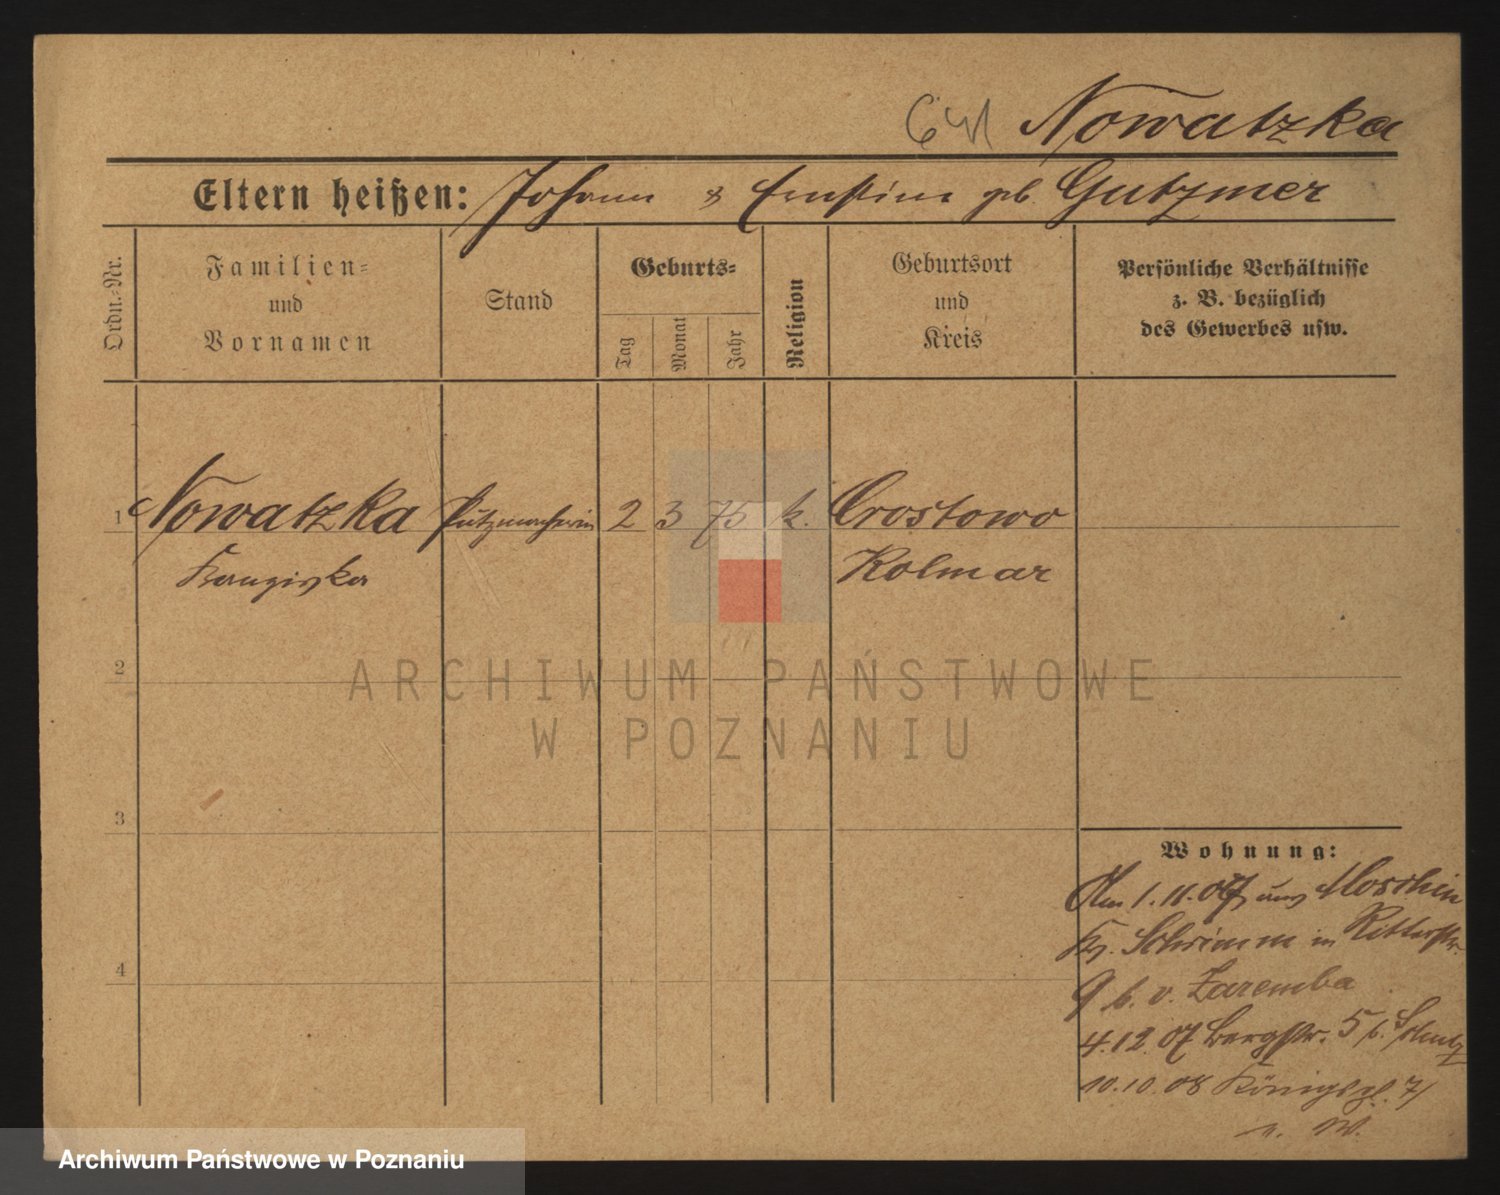 Nowatzka
Eltern heißen: Johann & Ernstine geb. Gutzmer
Ordn.-Nr.
Familien-
und
Vornamen
Stand
Geburts-
Tag
Monat
Jahr
Religion
Geburtsort
und
Kreis
Persönliche Verhältnisse
z. B. bezüglich
des Gewerbes usw.
1 Nowatzka Putzmacherin 2 3 75 k. Crostowo
Franziska Kolmar
2
3
4
Wohnung:
Am 1.11.07 aus Moschin
Kr. Schrimm in Ritterstr.
9 b. v. Zaremba
4.12.07 Bergstr. 5 b. Schulz
10.10.08 Königspl. 7/
n. W.
ARCHIWUM PAŃSTWOWE
W POZNANIU
Archiwum Państwowe w Poznaniu